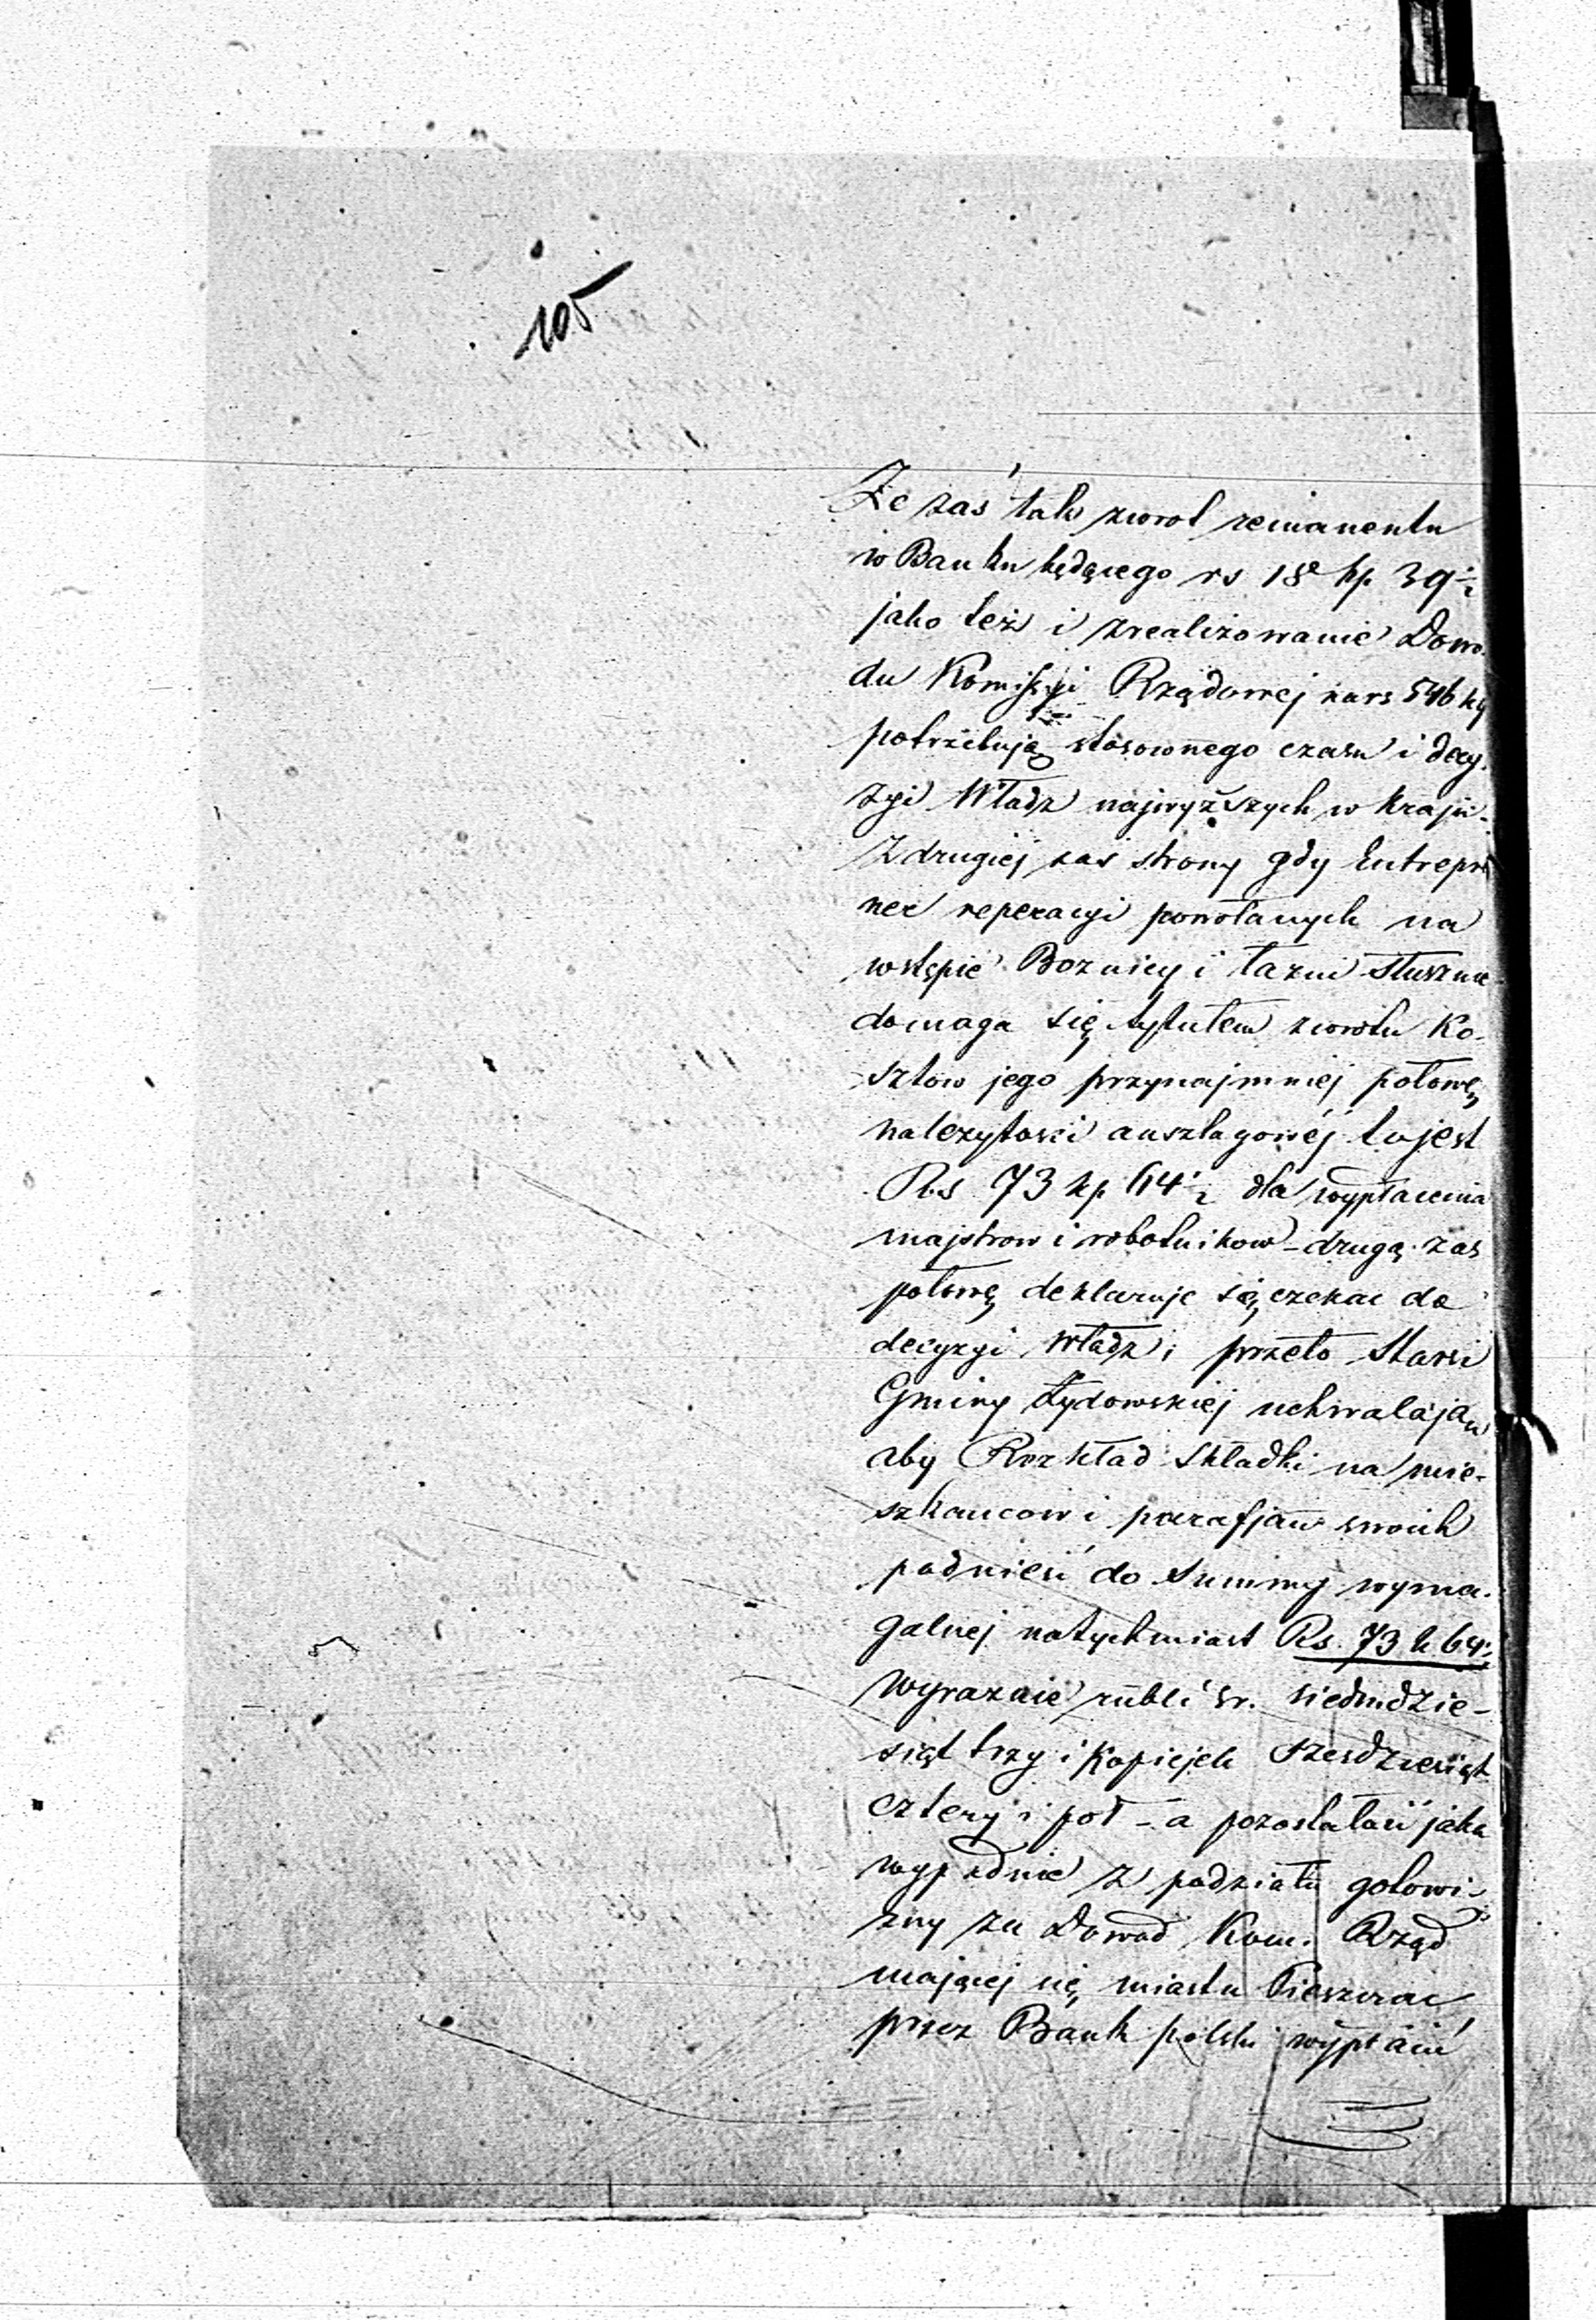 105
Że zaś tak zwrot remanentu
w Banku będącego rs 18 kp 39½
jako też i zrealizowanie Dowo-
du Komissyi Rządowej na rs 546 kp
potrzebują stosownego czasu i decy-
zyi Władz najwyższych w kraju -
Z drugiej zaś strony gdy Entrepre
ner reperacyi powołanych na
wstępie Boznicy i łazni słusznie
domaga się tytułem zwrotu Ko-
sztow jego przynajmniej połowę
należytości anszlagowéj to jest
Rs 73 kp 64½ dla wypłacenia
majstrow i robotnikow - drugą zas
połowę deklaruje się czekac do
decyzyi Władz; przeto Starsi
Gminy Żydowskiej uchwalają
aby Rozkład Składki na mie-
szkancow i parafjan swoich
podnieść do Summy wyma-
galnej natychmiast Rs. 73 k 64½
wyraznie rubli sr. siedmdzie-
siąt trzy i Kopiejek szesdziesiąt
cztery i poł - a pozostałość jaka
wypadnie z podziału gotowi-
zny za Dowod Kom. Rząd
mającej się miastu
przez Bank polski wypłacić